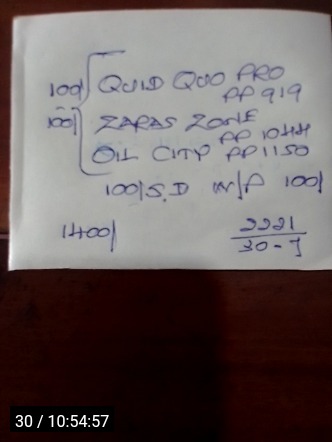 100/ QUID QUO PRO
PP 919
100/ ZAPAS ZONE
PP 1044
OIL CITY PP 1150
100/ S.D W/P 100/
1400/
2221
30-7
30 / 10:54:57